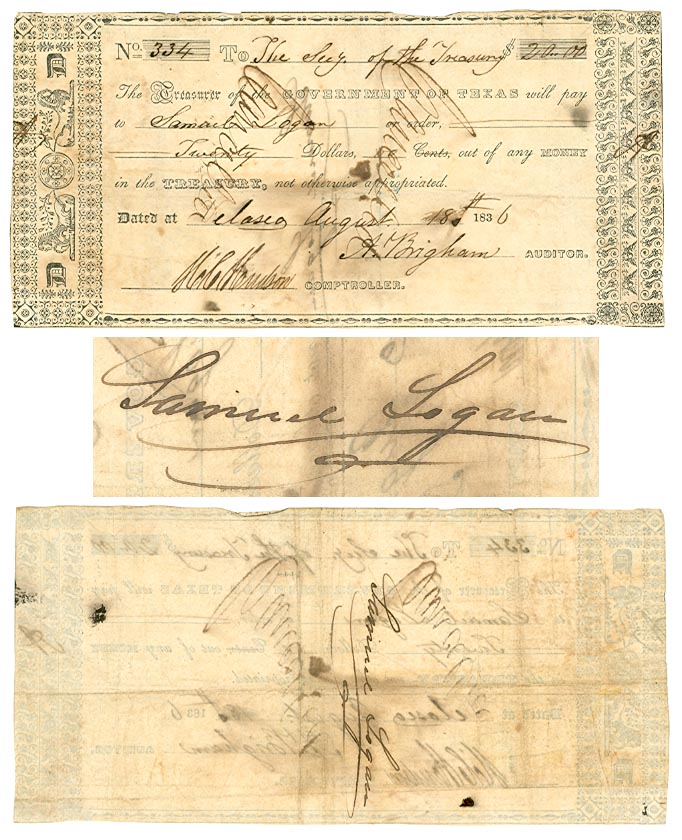 No. 334 To The Secy of the Treasury $ 20.00
The Treasurer of the GOVERNMENT OF TEXAS will pay
to Samuel Logan or order,
Twenty Dollars, Cents, out of any MONEY
in the TREASURY, not otherwise appropriated.
Dated at Velasco August 18th 1836
A. Brigham AUDITOR.
H. C. Hudson COMPTROLLER.
Samuel Logan
Samuel Logan